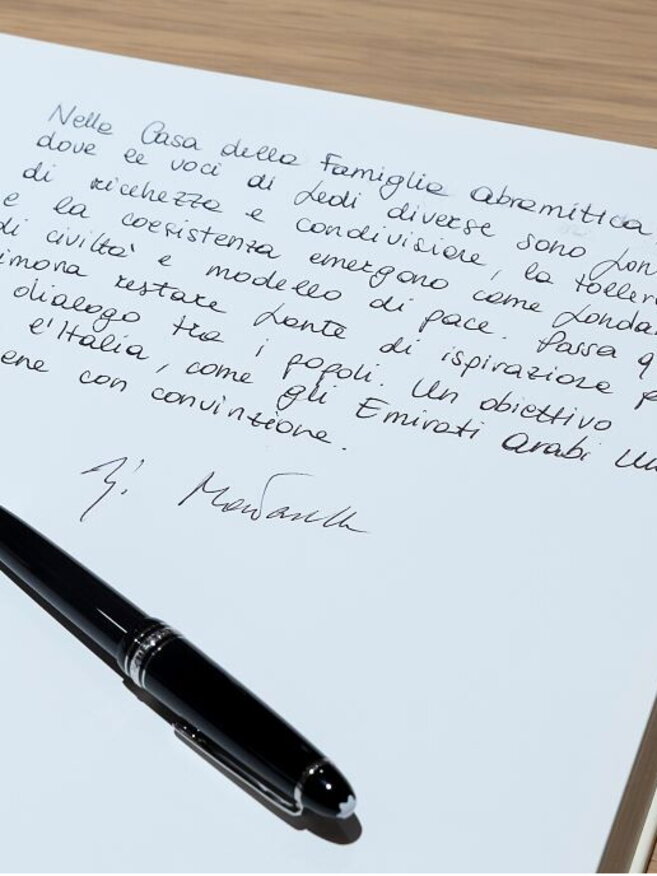 Nella Casa della Famiglia abramitica,
dove le voci di fedi diverse sono fon
di ricchezza e condivisione, la toller
e la coesistenza emergono come fonda
di civiltà e modello di pace. Possa q
imona restare fonte di ispirazione p
dialogo tra i popoli. Un obiettivo
l'Italia, come gli Emirati Arabi Un
ene con convinzione.